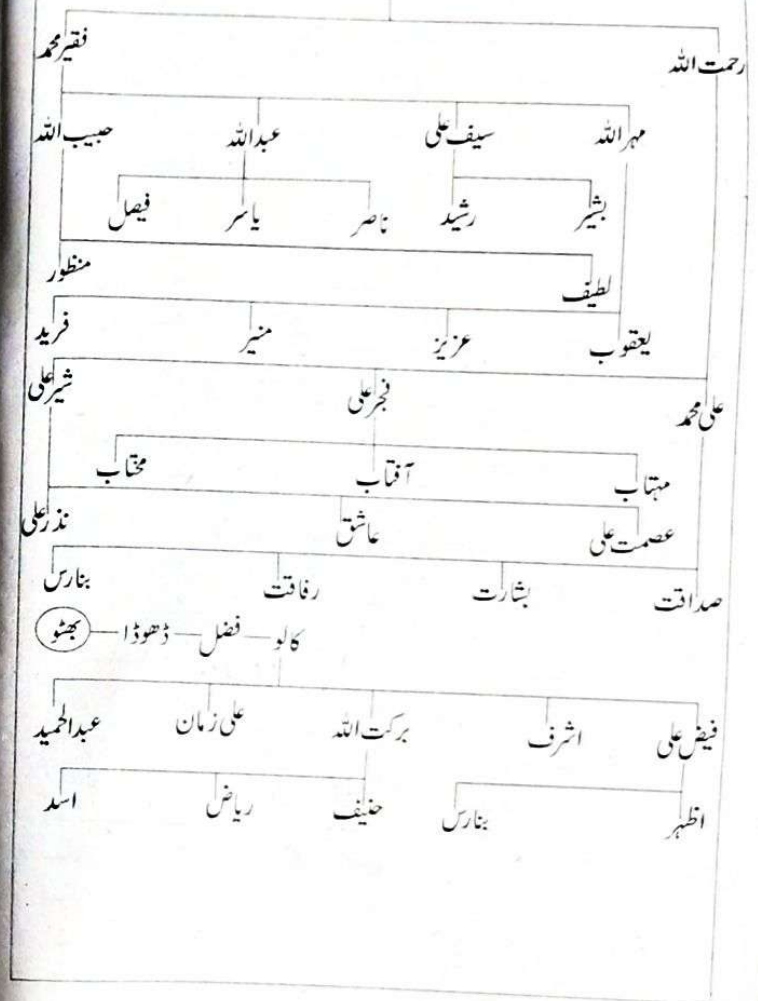 رحمت اللہ فقیر محمد
مہر اللہ سیف علی عبداللہ حبیب اللہ
بشیر رشید ناصر یاسر فیصل
لطیف منظور
یعقوب عزیز منیر فرید
علی محمد فجر علی شیر علی
مہتاب آفتاب مختاب
عصمت علی عاشق نذر علی
صداقت بشارت رفاقت بنارس
کالو — فضل — ڈھوڈا — بھٹو
فیض علی اشرف برکت اللہ علی زمان عبدالحمید
اظہر بنارس حنیف ریاض اسد